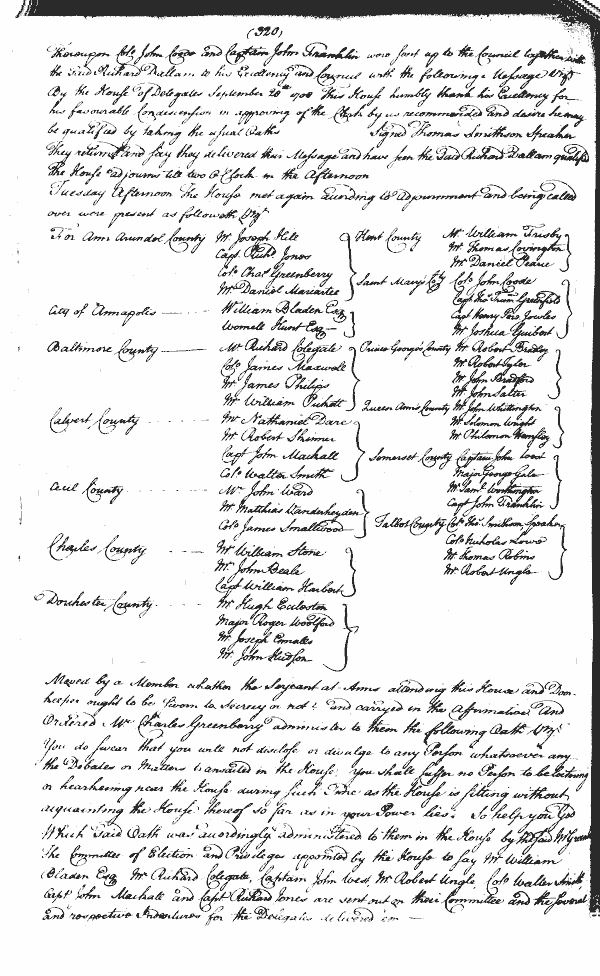 (320)
Thereupon Colo. John Coode and Captain John Franklin were sent up to the Council together with
the said Richard Dallam to his Excellency and Council with the following Message Vizt
By the House of Delegates September 28th 1708 This House humbly thank his Excellency for
his favourable Condescension in approving of the Clerk by us recommended and desire he may
be qualified by taking the usual Oaths Signd Thomas Smithson Speaker
They return and say they delivered their Message and have seen the said Richard Dallam qualified
The House adjourns till two o Clock in the Afternoon
Tuesday Afternoon The House met again According to Adjournment and being called
over were present as followeth Vizt
For Ann Arundel County Mr Joseph Hill
Capt Richd Jones
Colo Chas Greenberry
Mr Daniel Mariartee
City of Annapolis William Bladen Esq
Wornell Hunt Esq
Baltimore County Mr Richard Colegate
Colo James Maxwell
Mr James Philips
Mr William Pickett
Calvert County Mr Nathaniel Dare
Mr Robert Skinner
Capt John Mackall
Colo Walter Smith
Cecil County Mr John Ward
Mr Matthias Vanderheyden
Colo James Smallwood
Charles County Mr William Stone
Mr John Beale
Capt William Herbert
Dorchester County Mr Hugh Eccleston
Major Roger Woolford
Mr Joseph Ennalls
Mr John Hudson
Kent County Mr William Frisby
Mr Thomas Covington
Mr Daniel Pearce
Saint Marys Cty Colo John Coode
Capt Thos Truman Greenfield
Capt Henry Pere Jowles
Mr Joshua Guibert
Prince Georges County Mr Robert Bradley
Mr Robert Tyler
Mr John Bradford
Mr John Salter
Queen Anns County Mr John Whittington
Mr Solomon Wright
Mr Philemon Hemsley
Somerset County Captain John West
Major George Gale
Mr Saml Worthington
Capt John Franklin
Talbot County Colo Thos Smithson Speaker
Colo Nicholas Lowe
Mr Thomas Robins
Mr Robert Ungle
Moved by a Member whether the Serjeant at Arms attending this House and Door
keeper ought to be sworn to Secrecy or not? and carryed in the Affirmative And
Ordered Mr Charles Greenberry administer to them the following Oath Vizt
You do swear that you will not disclose or divulge to any Person whatsoever any
the Debates or Matters transacted in the House; You shall suffer no Person to be listening
or hearkening near the House during such Time as the House is sitting without
acquainting the House thereof so far as in your Power lies. So help you God
Which said Oath was accordingly administered to them in the House by the said Mr
The Committee of Election and Privileges appointed by the House to say Mr William
Bladen Esq Mr Richard Colegate, Captain John West, Mr Robert Ungle, Colo Walter Smith
Capt John Mackall and Capt Richard Jones are sent out on their Committee and the several
and respective Indentures for the Delegates delivered 'em